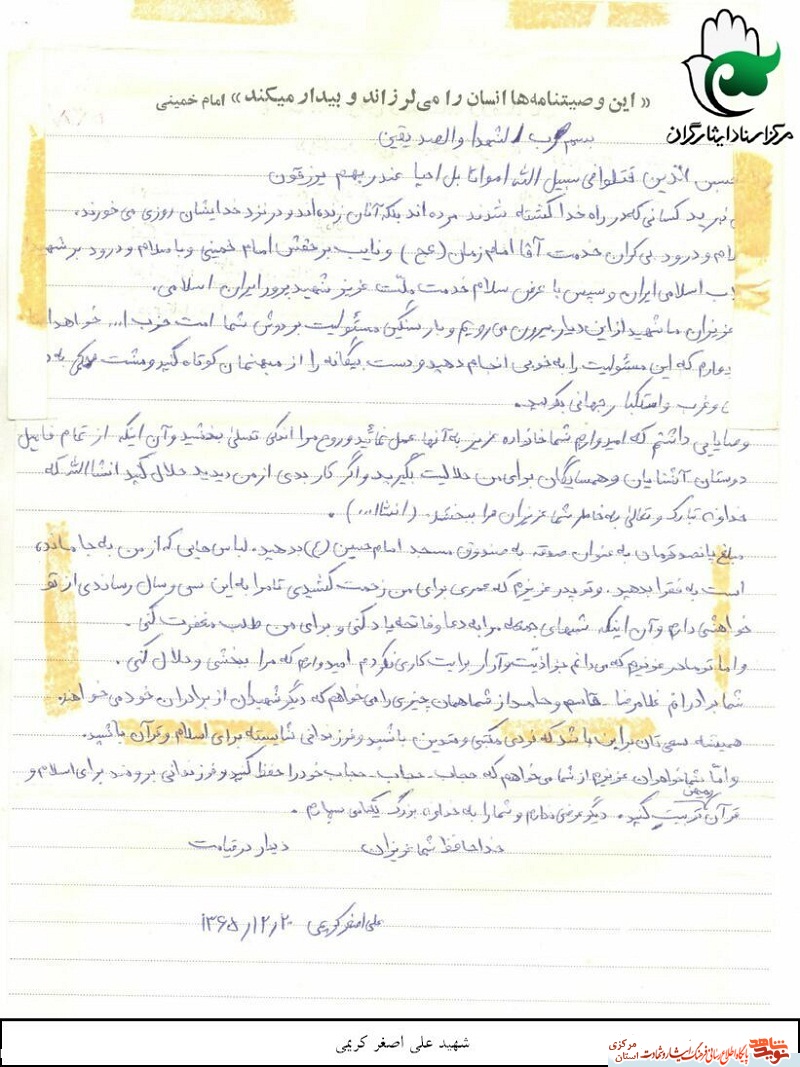 مرکز اسناد ایثارگران
« این وصیتنامه‌ها انسان را می‌لرزاند و بیدار میکند » امام خمینی
بسم رب الشهدا والصدیقین
الذین قتلوا فی سبیل الله امواتا بل احیا عند ربهم یرزقون
کسانی که در راه خدا کشته شدند مرده اند بلکه آنان زنده‌اند و در نزد خدایشان روزی می خورند.
و درود بی کران خدمت آقا امام زمان (عج) و نایب بر حقش امام خمینی و با سلام و درود بر
اسلامی ایران و سپس با عرض سلام خدمت ملت عزیز شهید پرور ایران اسلامی.
عزیزان ما شهید از این دیار بیرون می رویم و بار سنگین مسئولیت بر دوش شما امت حزب ا...
که این مسئولیت را به خوبی انجام دهید و دست بیگانه را از میهنمان کوتاه کنید و مشت
و غرب و استکبار جهانی بکوبید.
وصایایی داشتم که امیدوارم شما خانواده عزیز به آنها عمل نمائید و روح مرا اندکی تسلی بخشید و آن اینکه از تمام فامیل
دوستان آشنایان و همسایگان برای من حلالیت بگیرید و اگر کار بدی از من دیدید حلال کنید انشاالله که
خداوند تبارک و تعالی به خاطر شما عزیزان مرا ببخشد. (انشاا...).
مبلغ پانصد تومان به عنوان صدقه به صندوق مسجد امام حسین (ع) بدهید. لباس هایی که از من به جا مانده
است به فقرا بدهید. و تو پدر عزیزم که عمری برای من زحمت کشیدی تا مرا به این سن و سال رساندی از تو
خواهشی دارم و آن اینکه شبهای جمعه مرا به دعا و فاتحه یاد کنی و برای من طلب مغفرت کنی.
و اما تو مادر عزیزم که می دانم جز اذیت و آزار برایت کاری نکردم امیدوارم که مرا ببخشی و حلال کنی.
شما برادرانم غلامرضا - قاسم و حامد از شما همان چیزی را می خواهم که دیگر شهیدان از برادران خود می خواهند.
همیشه سعی تان بر این باشد که فردی مکتبی و متدین باشید و فرزندانی شایسته برای اسلام و قرآن باشید.
و اما شما خواهران عزیزم از شما می خواهم که حجاب - حجاب - حجاب خود را حفظ کنید و فرزندانی برومند برای اسلام و
قرآن و میهن تربیت کنید. دیگر عرضی ندارم و شما را به خداوند بزرگ یکتا می سپارم.
خداحافظ شما عزیزان دیدار در قیامت
علی اصغر کریمی ۱۳۶۵/۱۲/۲۰
شهید علی اصغر کریمی
نوید شاهد پایگاه اطلاع رسانی فرهنگ ایثار و شهادت استان مرکزی